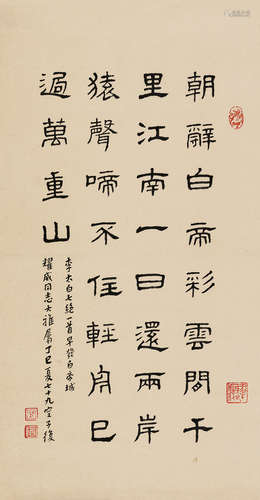 朝辭白帝彩雲間千
里江南一日還兩岸
猿聲啼不住輕舟已
過萬重山
李太白七絕一首早發白帝城
耀威同志大雅屬丁巳夏七十九